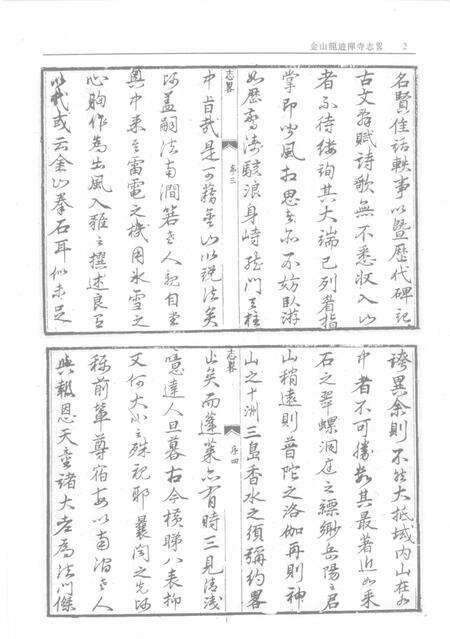 金山龍遊禪寺志畧 2
名賢佳話軼事以曁歷代碑記
古文辭賦詩歌無不悉収入山
者不待縷詢其大端已列眉指
掌即少風抝思亦不妨臥游
如歷秀濤駭浪身峙龍門天柱
志畧 序三
中旨哉是可稱金山以說法矣
師盖嗣法南澗箬老人親自堂
奧中来之雷電之機用氷雪之
心胸作爲出風入雅之撰述良有
以哉或云金山拳石耳似未足
誇異余則不然大抵域内山在水
中者不可勝数其最著近如采
石之翠螺洞庭之縹緲岳陽之君
山稍遠則普陀之洛伽再則神
山之十洲三島香水之須彌約畧
志畧 序四
止矣而蓬萊亦有時三見清淺
噫達人旦暮古今横睇八表抑
又何大小之殊視耶曩聞之先師
稱前輩尊宿每以南澗老人
與報恩天童諸大老爲法門傑